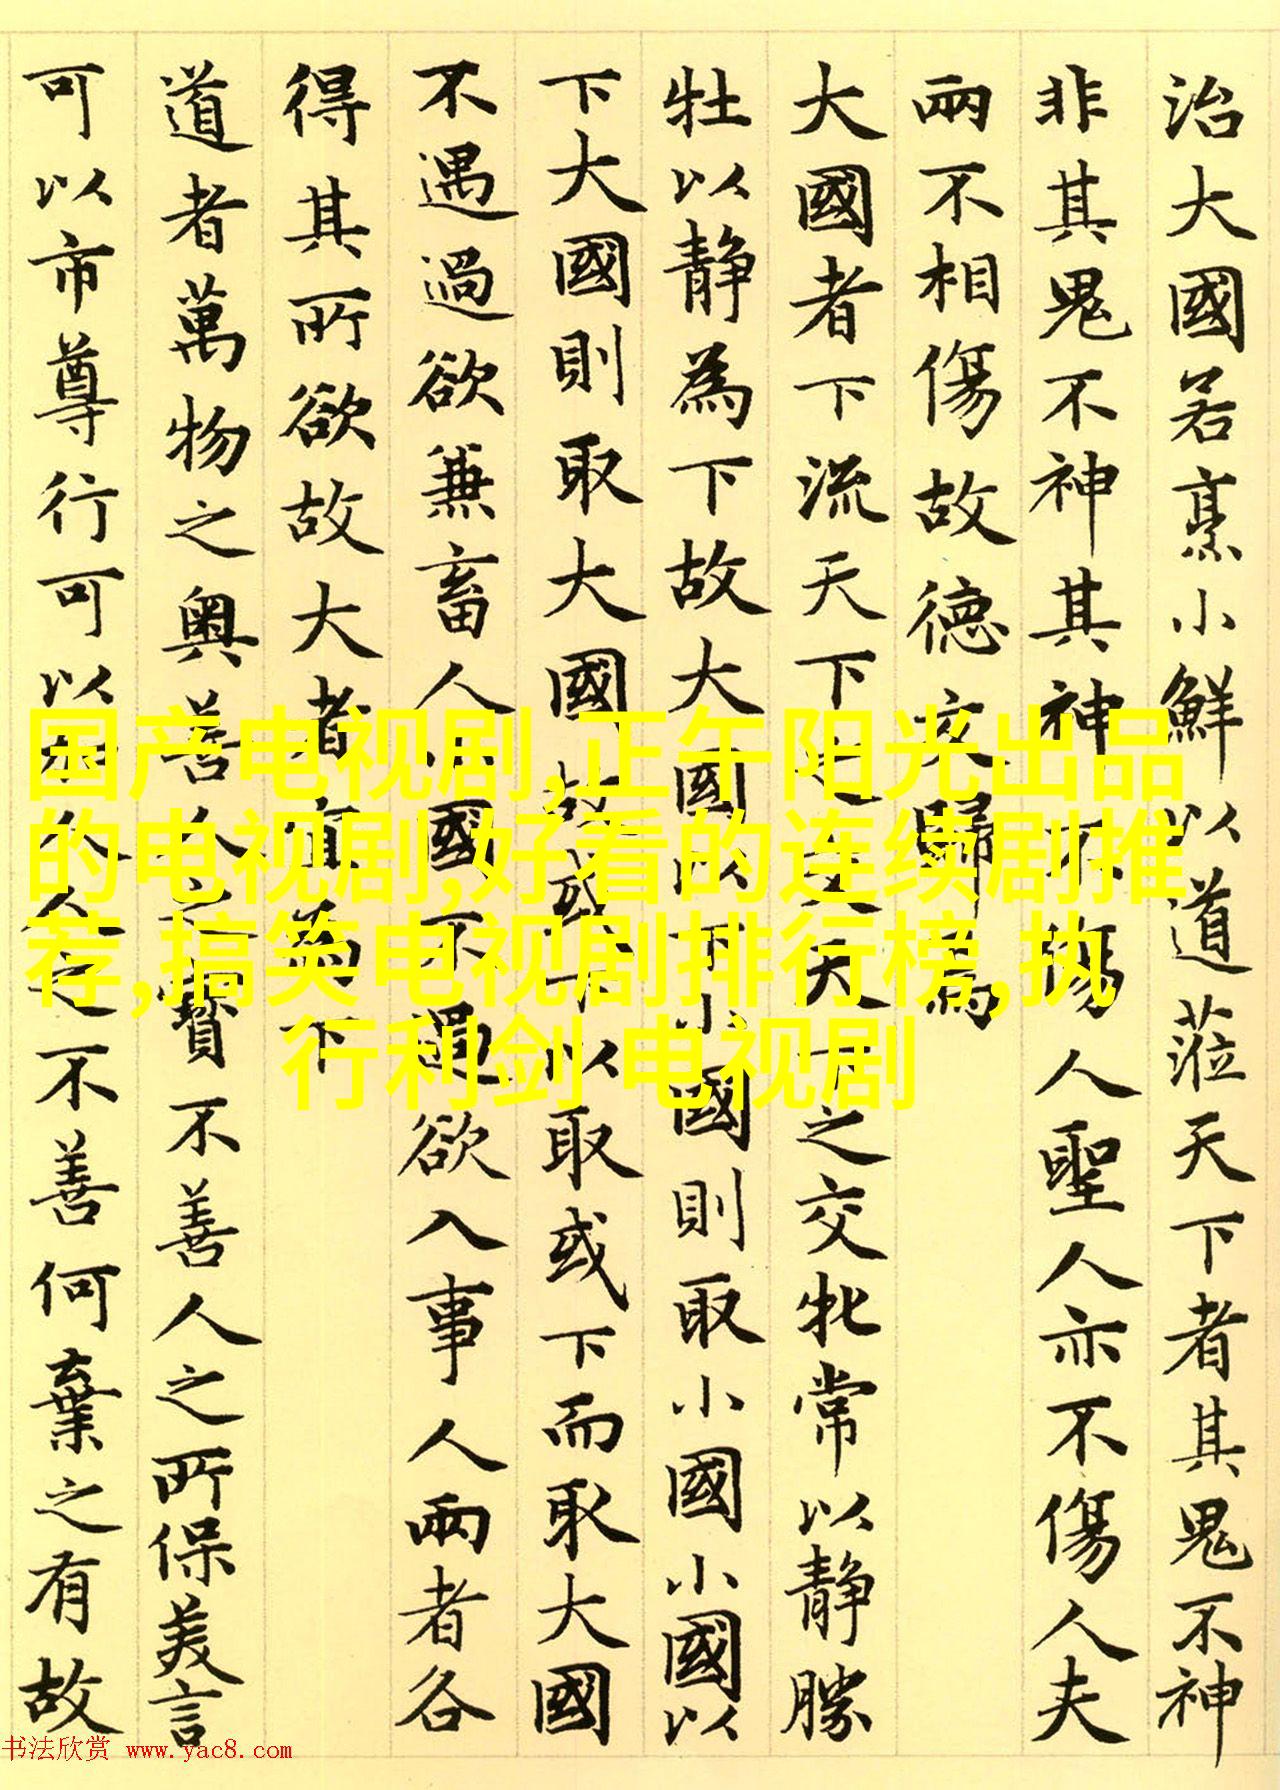 治大國若烹小鮮以道蒞天下者其鬼不神
非其鬼不神其神不傷人聖人亦不傷人夫
兩不相傷故德交歸焉
大國者下流天下之交天下之交牝常以静勝
牡以静為下故大國以下小國則取小國小國以
下大國則取大國故或下以取或下而取大國
不遇過欲兼畜人小國不過欲入事人兩者各
得其所欲故大者宜為下
道者萬物之奧善人之寶不善人之所保美言
可以市尊行可以人人之不善何棄之有故
国产电视剧,正午阳光出品
的电视剧,好看的连续剧推
荐,搞笑电视剧排行榜,执
行利剑 电视剧
书法欣赏 www.yac8.com